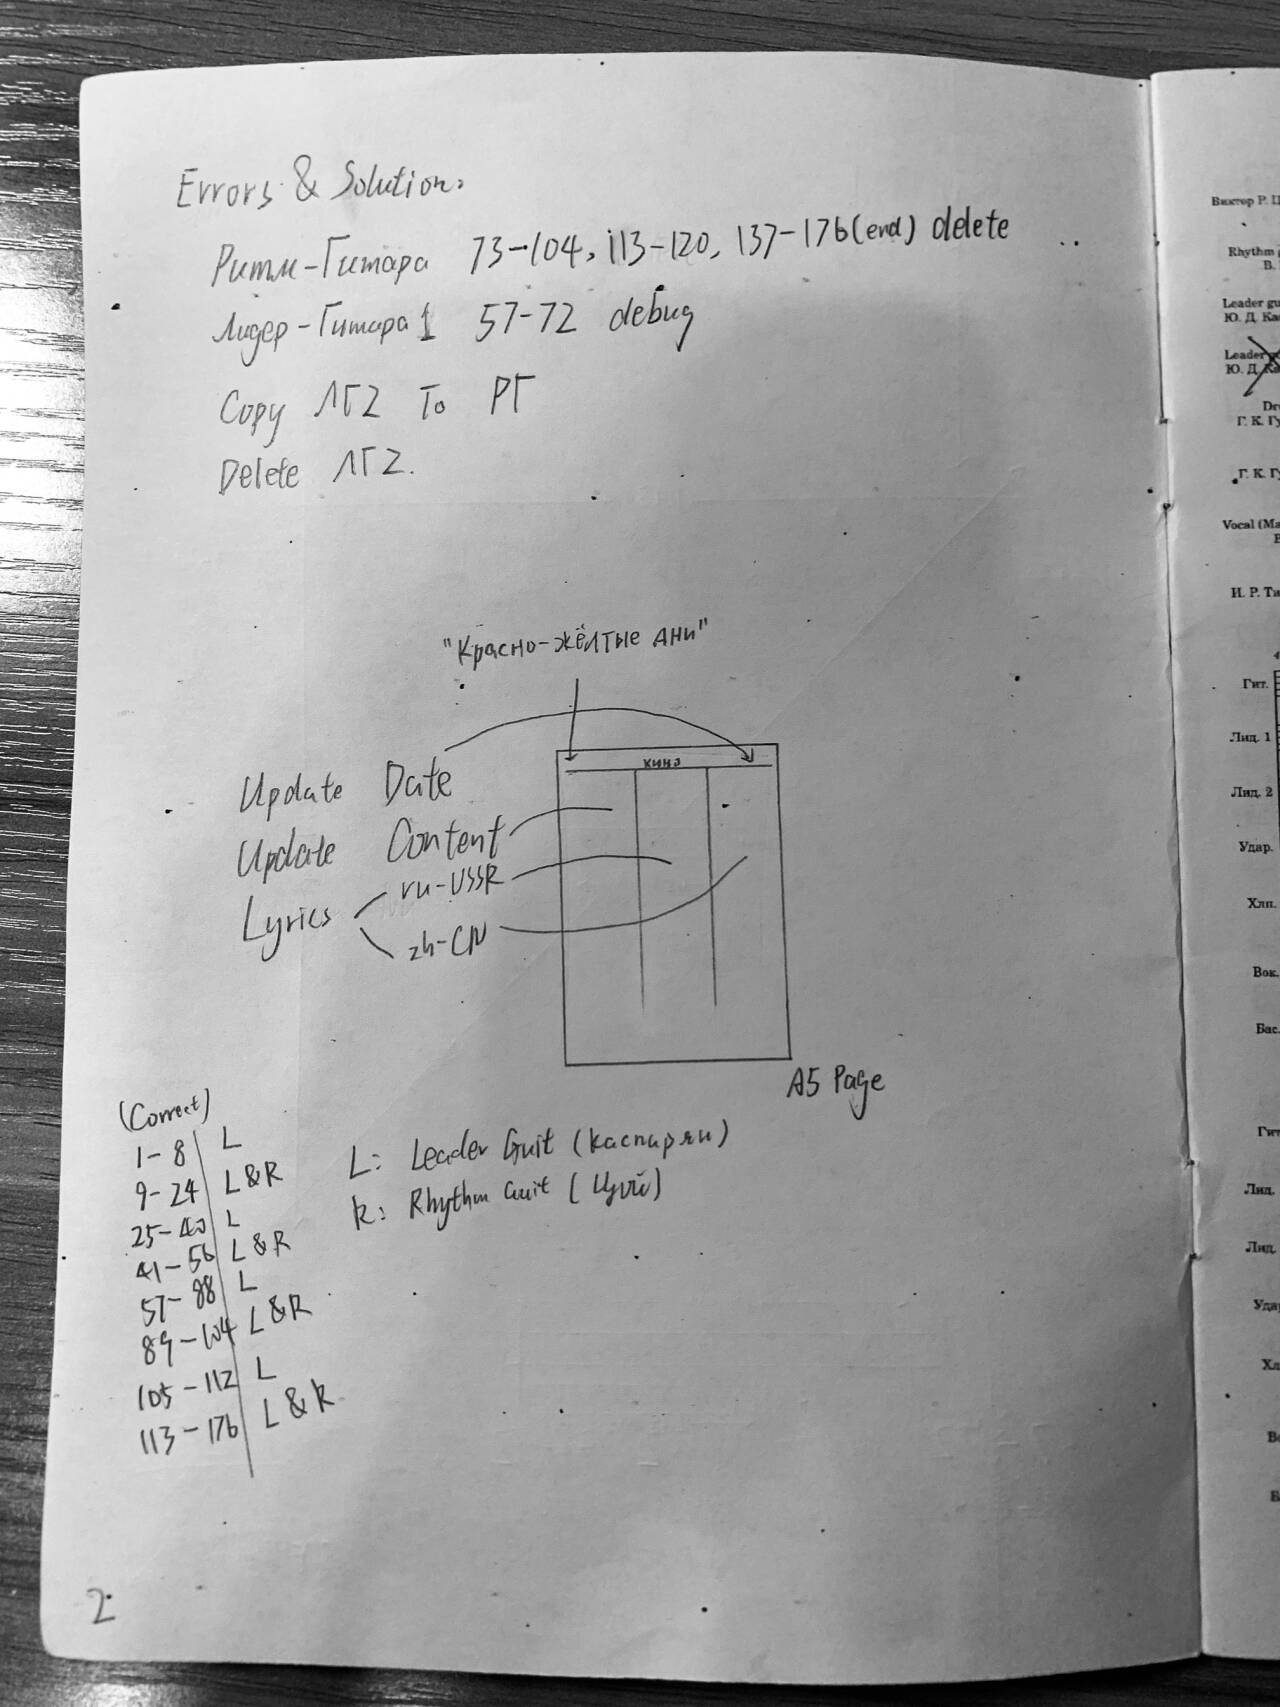 Errors & Solution:
Ритм-Гитара 73-104, 113-120, 137-176(end) delete
Лидер-Гитара 1 57-72 debug
Copy ЛГ2 To РГ
Delete ЛГ2.
"Красно-жёлтые дни"
кино
Update Date
Update Content
Lyrics
ru-USSR
zh-CN
A5 Page
(Correct)
1-8 L
9-24 L&R
25-40 L
41-56 L&R
57-88 L
89-104 L&R
105-112 L
113-176 L&R
L: Leader Guit (Каспарян)
R: Rhythm Guit (Цой)
2
Виктор Р. Ц
Rhythm
В.
Leader gu
Ю. Д. Кас
Leader
Ю. Д.
Dr
Г. К. Гу
Г. К. Гу
Vocal (Ma
И. Р. Ти
4
Гит.
Лид. 1
Лид. 2
Удар.
Хлп.
Вок.
Бас.
Гит
Лид.
Лид.
Удар
Хл
Во
Б